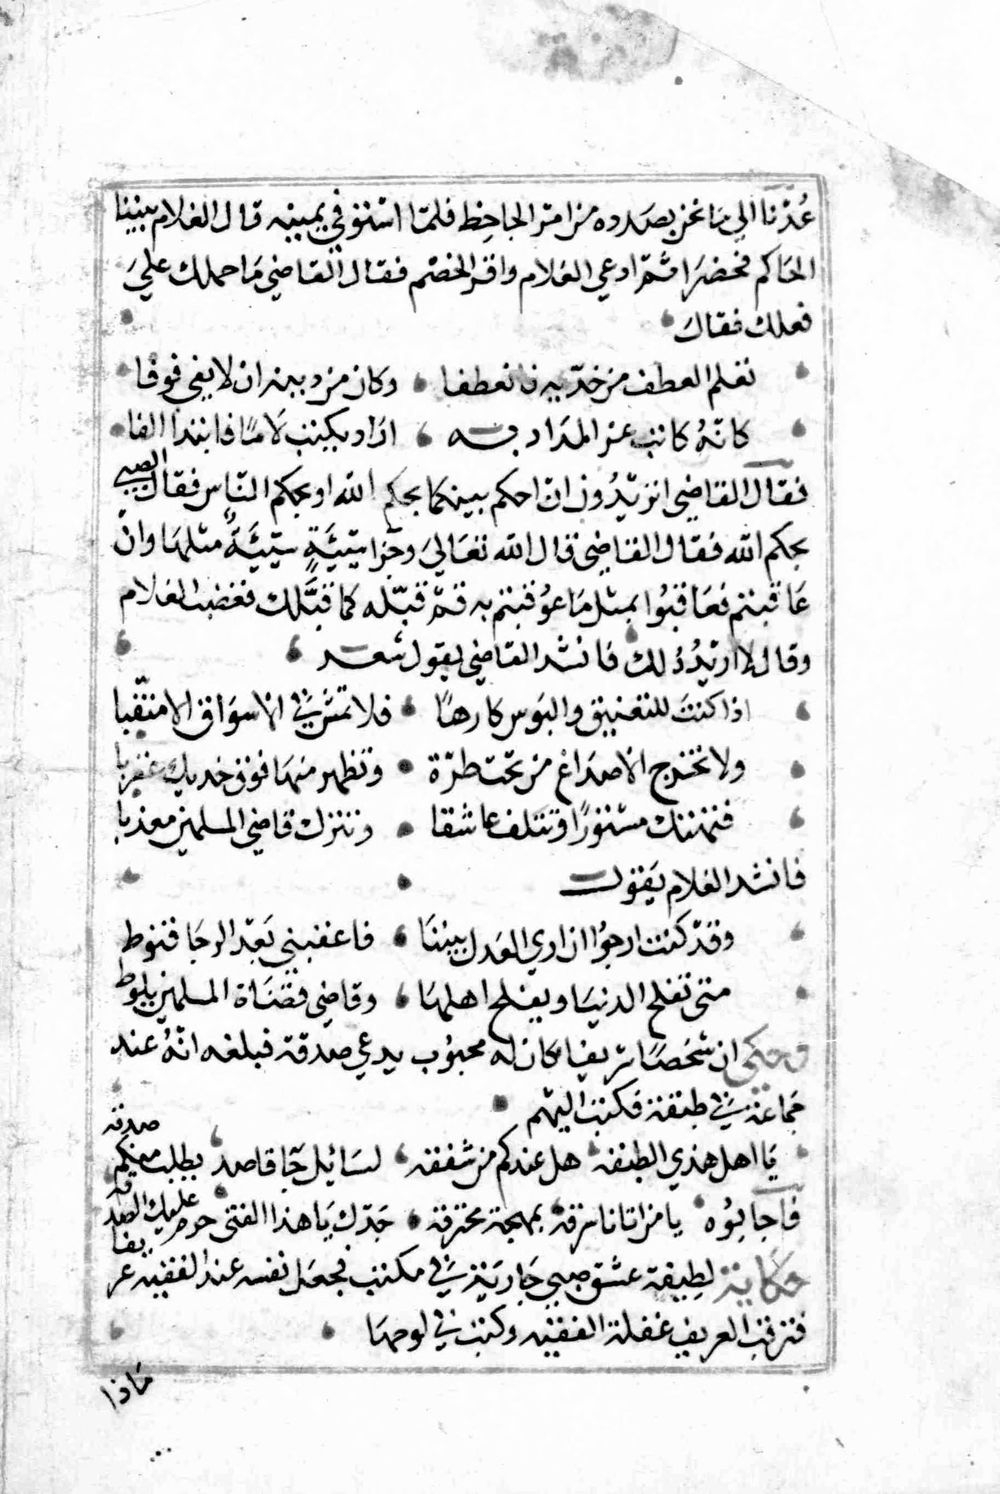 عُدْنا الي مَا نحن بصَدده من امر الجاحِظ فلمّا استوفي يمينه قال الغلام بيننا
الحاكم فحضرا ثمّ ادعي الغلام واقر الخصْم فقال القاضي مَا حملك عليَ
فعلك فقالَ
تعلم العطف من خدّيه فانعطفا وكان من دينه ان لا يفي فوفا
كانّهُ كاتب عز المدَاد به ارَاد يكتب لَامًا فابتدا الفا
فقال القاضي اتريْدُون ان احكم بينكما بحكم الله او بحكم النّاس فقال الصبي
بحكم الله فقال القاضي قال الله تعَاليَ وجَزا سَيّئَةٍ سَيّئَةٌ مثلهَا وانْ
عَاقبتم فعَاقبُوا بمثل مَا عوُقبتم به قمْ قبّله كما قبَّلك فغضب الغلام
وقال لا اريْدُ ذلك فانشد القاضي يقول شعر
اذا كنتَ للتعنيق والبَوس كارهًا فلا تمش في الاسوَاق الا منقّبا
ولا تخرج الاصدَاغ من تحت طرّة وتظهر منهَا فوق خديك عقربا
فتهتك مستورًا وتتلف عاشقا وتترك قاضي المسلمين معذبا
فانشد الغلام يَقول
وقدْ كنت ارجوُا ان اري العَدل بيننَا فاعقبني بَعْد الرجَا قنوط
متى تفلح الدنيَا ويفلح اهلهَا وقاضي قضَاة المسلمين يلوط
وحكي ان شخصًا شريفيا كان له محبوُب يدعي صدقة فبلغه انهُ عند
جمَاعة في طبقة فكتب اليهْم
يَا اهل هذي الطبقه هل عندكم من شفقه لسَائِل جَا قاصد يطلب منكم صدقة
فأجابوُه يا من اتانا سرقة بمهجة محترقة جَدّك يَا هذا الفتى حرم عليك الصدقه
حكاية لطِيفة عشق صبي جَارية في مكتب فجعَل نفسه عند الفقيه عريفا
فترقب العريف غفلة الفقيْه وكتب في لوحهَا
مَاذا